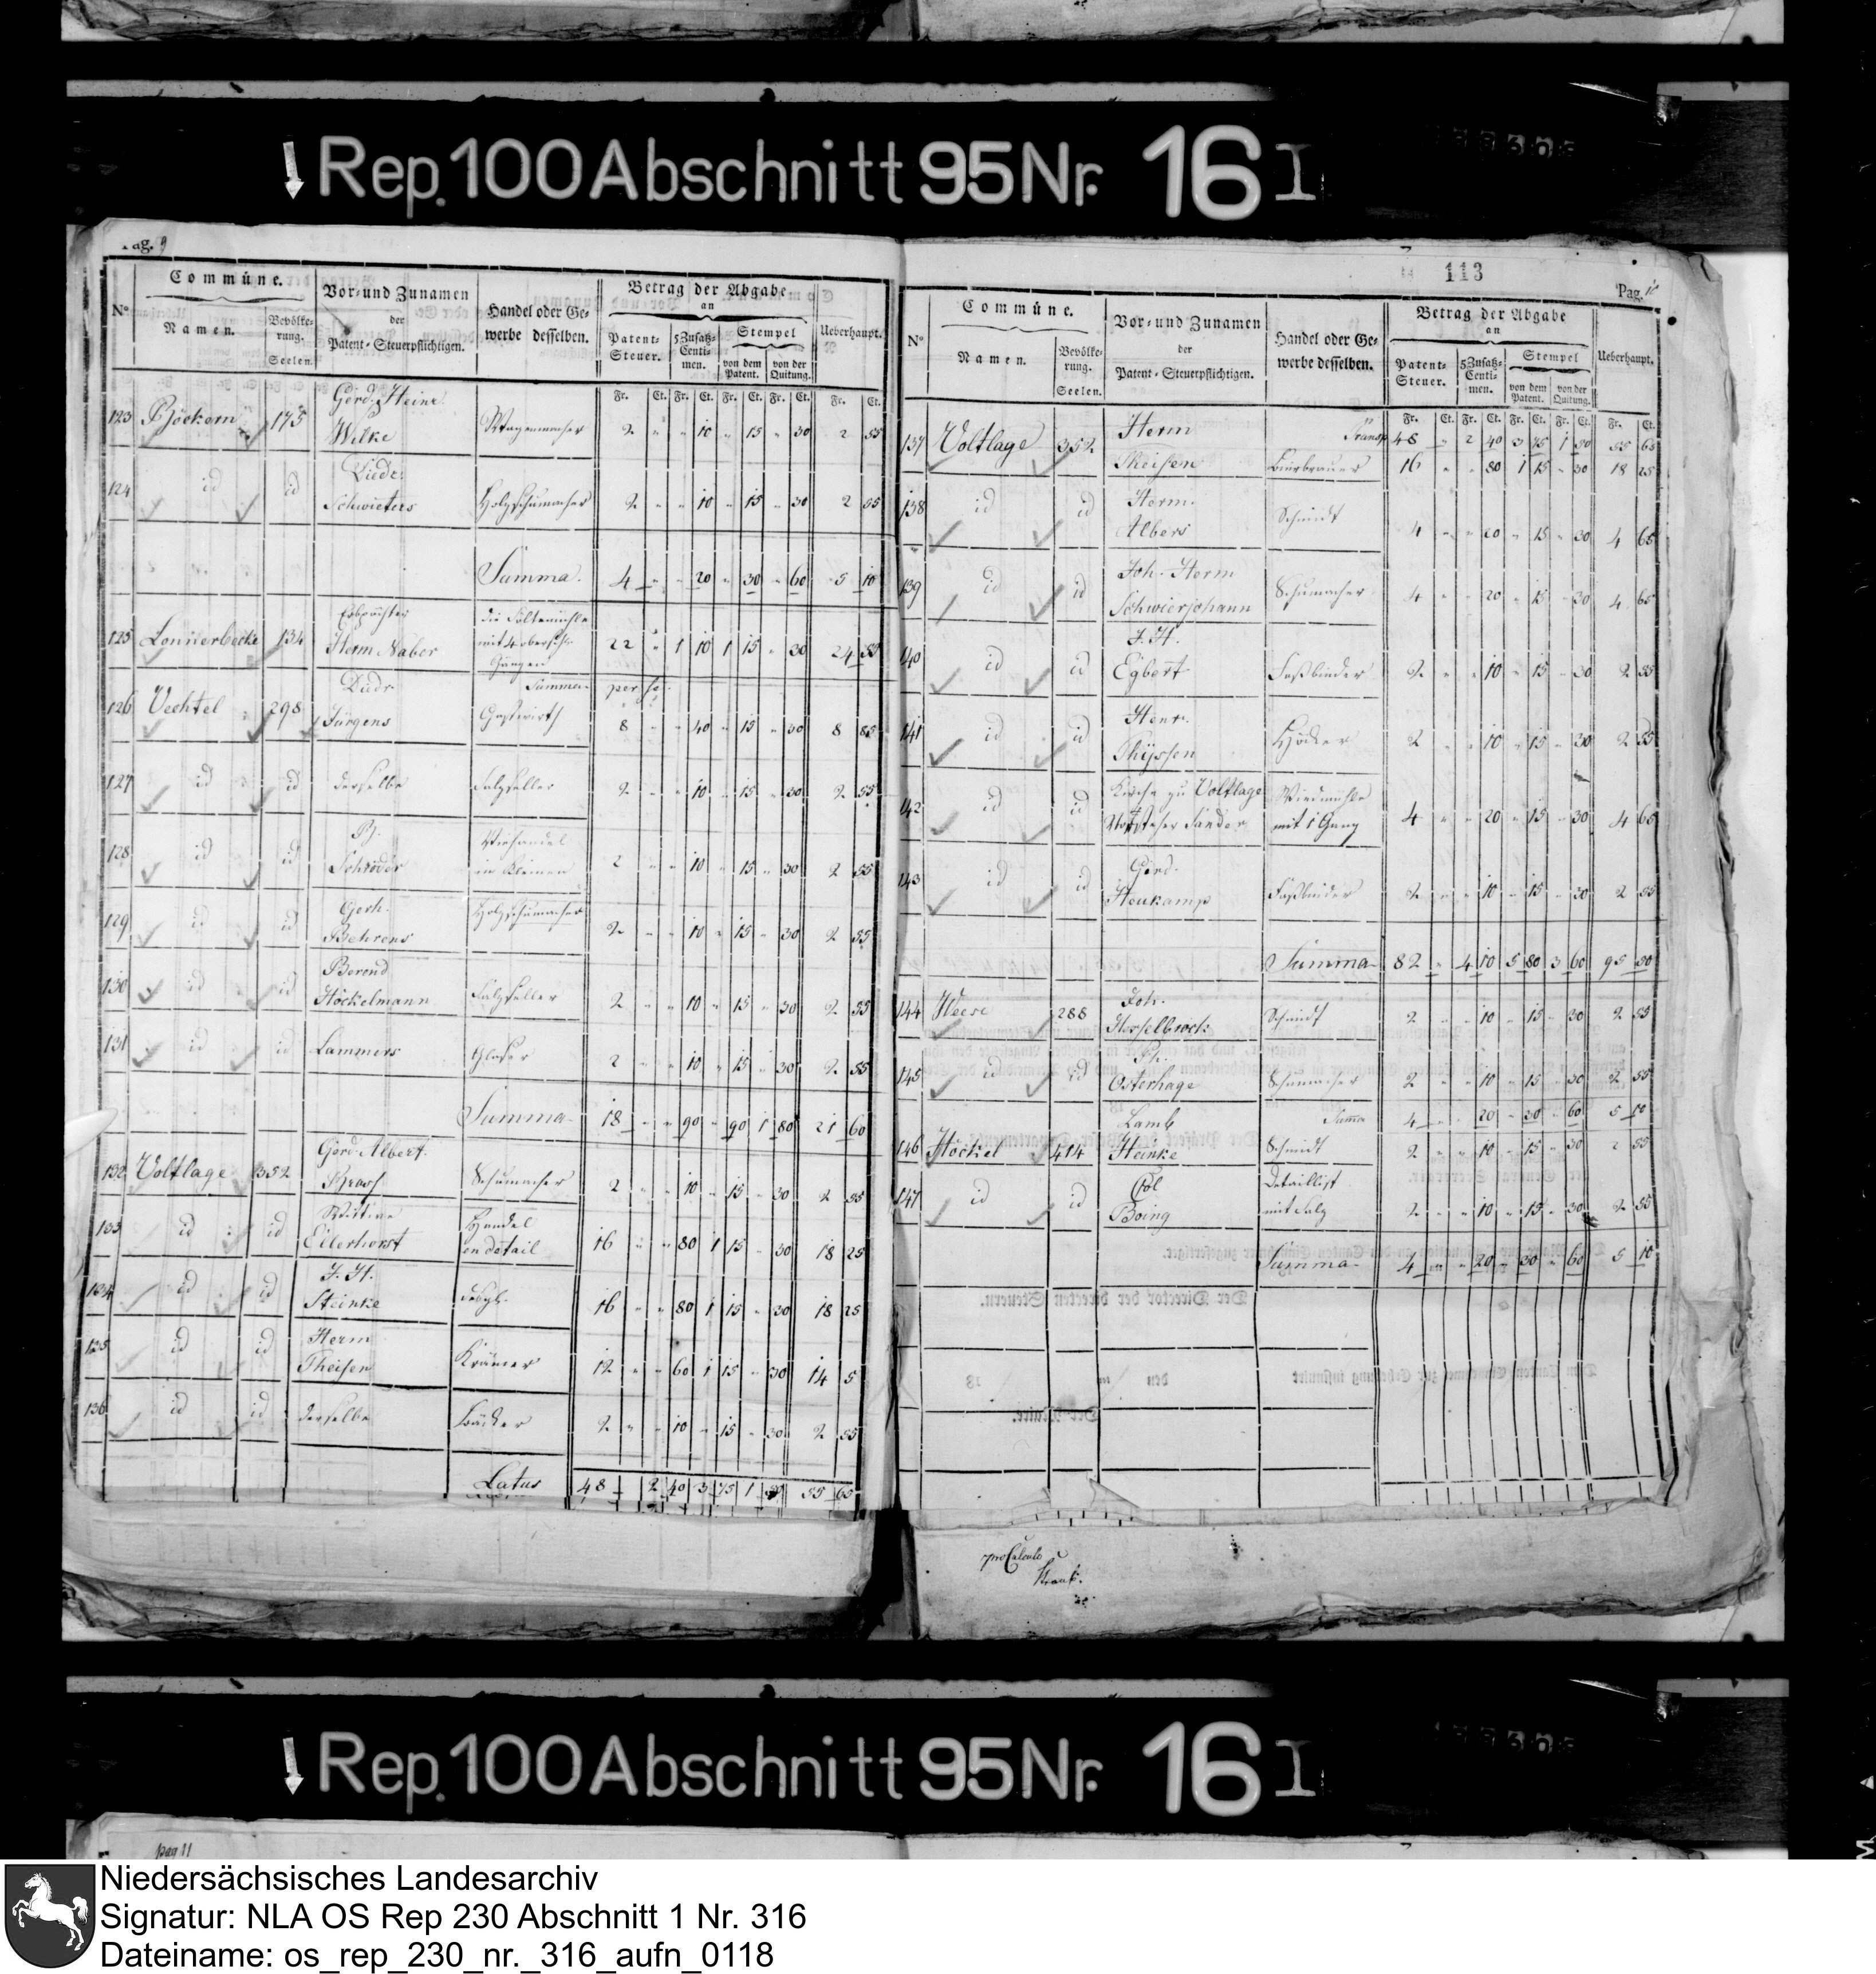 Rep. 100 Abschnitt 95 Nr. 16 I
Pag. 9
Commüne.
Vor- und Zunamen
der
Patent-Steuerpflichtigen.
Handel oder Ge-
werbe desselben.
Betrag der Abgabe
an
Ueberhaupt.
N°
Namen.
Bevölke-
rung.
Seelen.
Patent-
Steuer.
5 Zusatz-
Centi-
men.
Stempel
von dem
Patent.
von der
Quitung.
Fr. Ct. Fr. Ct. Fr. Ct. Fr. Ct. Fr. Ct.
Gerd Heinr
123 Böckern 175 Wilke Wagenmacher 2 " " 10 " 15 " 30 2 55
Diedr:
124 id id Schwieters Holzschumacher 2 " " 10 " 15 " 30 2 55
Summa. 4 " " 20 " 30 " 60 5 10
Erbpächter die
125 Lonnerbecke 134 Herm Naber mit 4 22 " 1 10 1 15 " 30 24 55
Gängen
Diedr Summa per se
126 Vechtel 298 Jürgens Gastwirth 8 " " 40 " 15 " 30 8 85
127 id id derselbe Salzseller 2 " " 10 " 15 " 30 2 55
Viehandel
128 id id Schröder im Kleinen 2 " " 10 " 15 " 30 2 55
Gerh.
129 id id Behrens Holzschumacher 2 " " 10 " 15 " 30 2 55
Berend
130 id id Höckelmann Salzseller 2 " " 10 " 15 " 30 2 55
131 id id Lammers Glaser 2 " " 10 " 15 " 30 2 55
Summa 18 " " 90 " 90 1 80 21 60
Gerd Albert
132 Voltlage 352 Schumacher 2 " " 10 " 15 " 30 2 55
Wittwe Handel
133 id id Eilerhorst en detail 16 " " 80 1 15 " 30 18 25
J. H.
134 id id Steinke 16 " " 80 1 15 " 30 18 25
Herm
135 id id Theisen Krämer 12 " " 60 1 15 " 30 14 5
136 id id derselbe Bäcker 2 " " 10 " 15 " 30 2 55
Latus 48 2 40 3 75 1 50 55 65
113
Pag. 10
Commüne.
Vor- und Zunamen
der
Patent-Steuerpflichtigen.
Handel oder Ge-
werbe desselben.
Betrag der Abgabe
an
Ueberhaupt.
N°
Namen.
Bevölke-
rung.
Seelen.
Patent-
Steuer.
5 Zusatz-
Centi-
men.
Stempel
von dem
Patent.
von der
Quitung.
Fr. Ct. Fr. Ct. Fr. Ct. Fr. Ct. Fr. Ct.
Herm Transp 48 " 2 40 3 75 1 50 55 65
137 Voltlage 352 Theisen Bierbrauer 16 " " 80 1 15 " 30 18 25
Herm.
138 id id Albers Schmidt 4 " " 20 " 15 " 30 4 65
Joh. Herm
139 id id Schwierjohann Schumacher 4 " " 20 " 15 " 30 4 65
J. H.
140 id id Egbert Faßbinder 2 " " 10 " 15 " 30 2 55
Henr.
141 id id Thijssen Höcker 2 " " 10 " 15 " 30 2 55
Kirche zu Voltlage Windmühle
142 id id Vorsteher Sander mit 1 Gang 4 " " 20 " 15 " 30 4 65
Gerd.
143 id id Heukamp Faßbinder 2 " " 10 " 15 " 30 2 55
Summa 82 " 4 10 5 80 3 60 95 50
Joh.
144 Weese 288 Hesselbrock Schmidt 2 " " 10 " 15 " 30 2 55
145 id id Osterhage Schumacher 2 " " 10 " 15 " 30 2 55
Lamb Summa 4 " " 20 " 30 " 60 5 10
146 Höckel 414 Heinke Schmidt 2 " " 10 " 15 " 30 2 55
Detaillist
147 id id Boing mit Salz 2 " " 10 " 15 " 30 2 55
Summa 4 " " 20 " 30 " 60 5 10
pro Calculo
Rep. 100 Abschnitt 95 Nr. 16 I
pag 11
Niedersächsisches Landesarchiv
Signatur: NLA OS Rep 230 Abschnitt 1 Nr. 316
Dateiname: os_rep_230_nr._316_aufn_0118